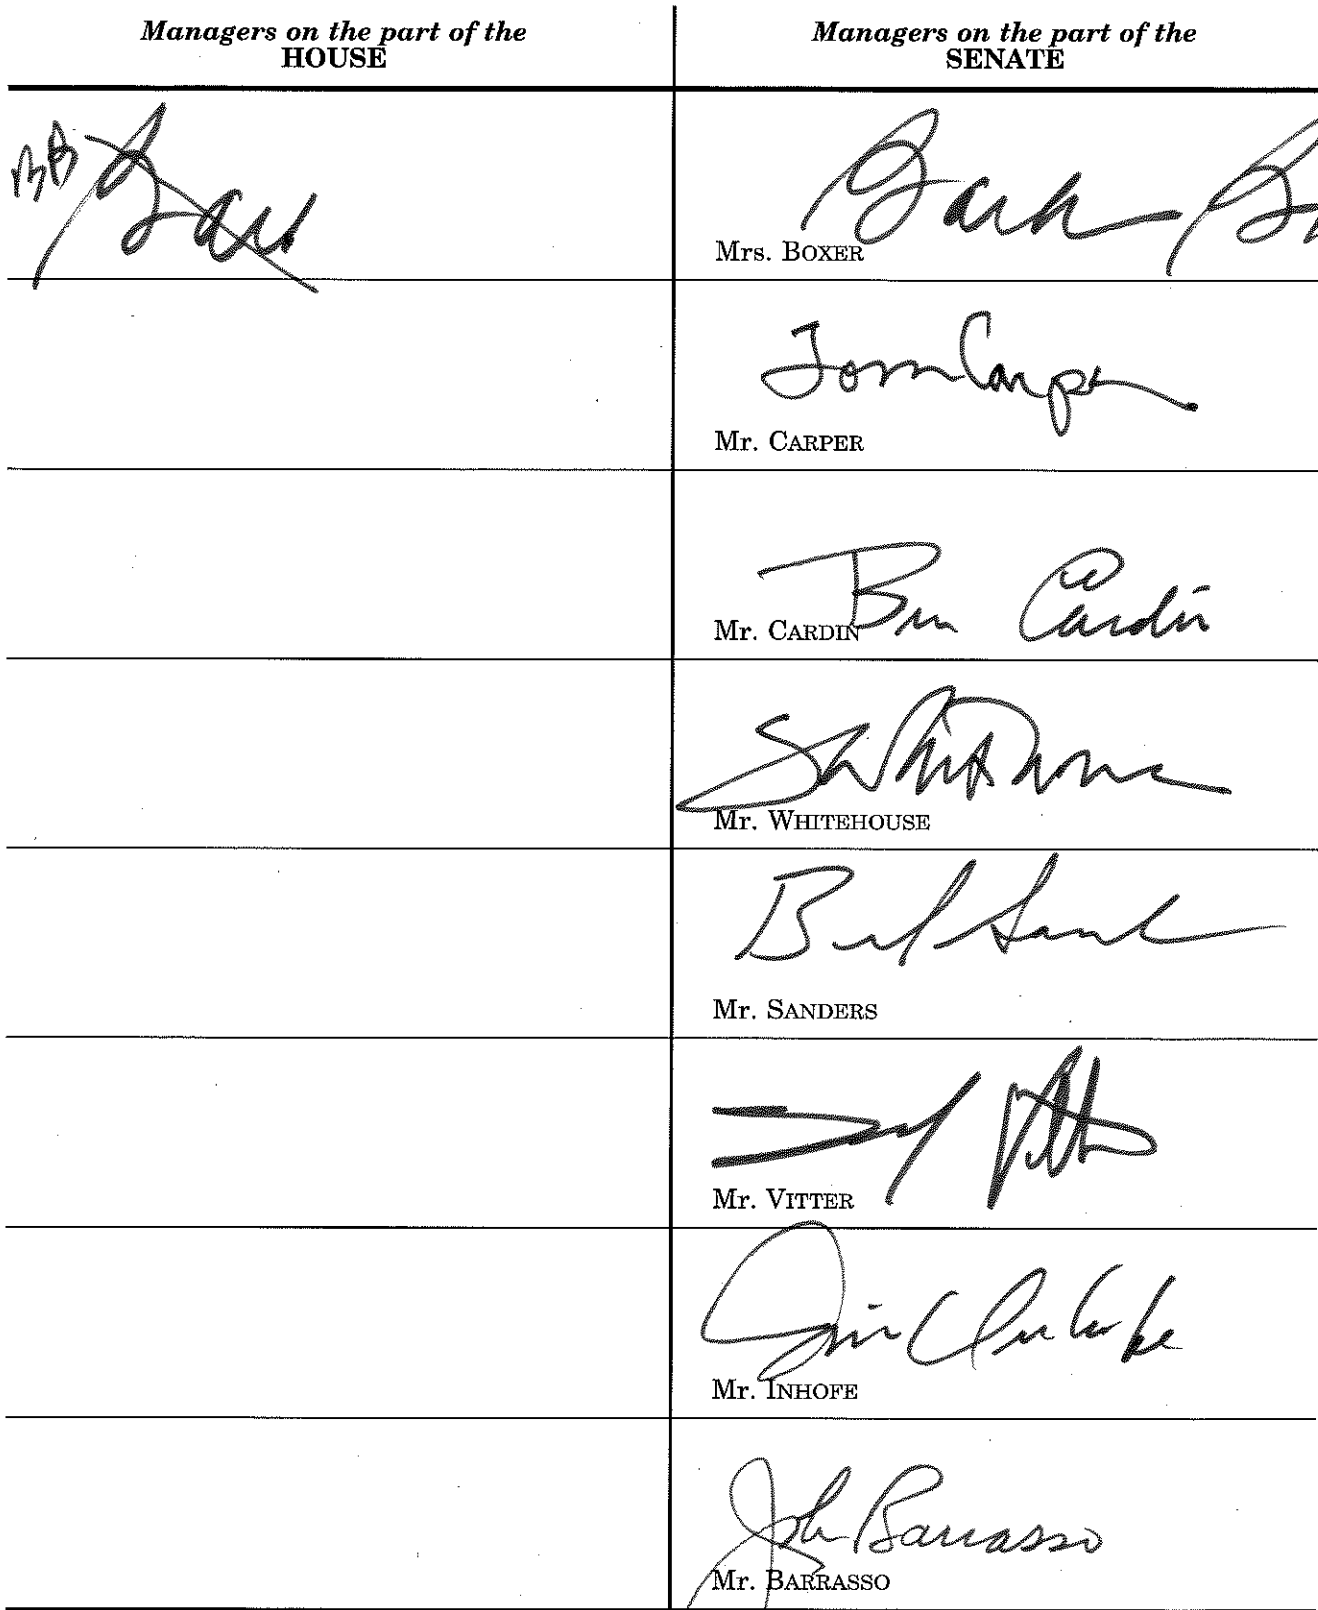 Managers on the part of the
HOUSE
Managers on the part of the
SENATE
BB
Mrs. BOXER
Tom Carper
Mr. CARPER
Ben Cardin
Mr. CARDIN
Mr. WHITEHOUSE
Mr. SANDERS
Mr. VITTER
Jim Inhofe
Mr. INHOFE
John Barrasso
Mr. BARRASSO